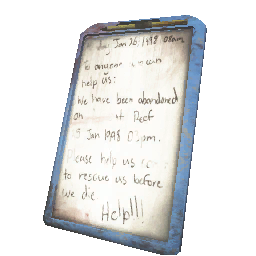 day Jan 26, 1998 08am
To anyone can
help us:
We have been abandoned
on Reef
Jan 1998 pm.
Please help us
to rescue us before
we die
Help!!!